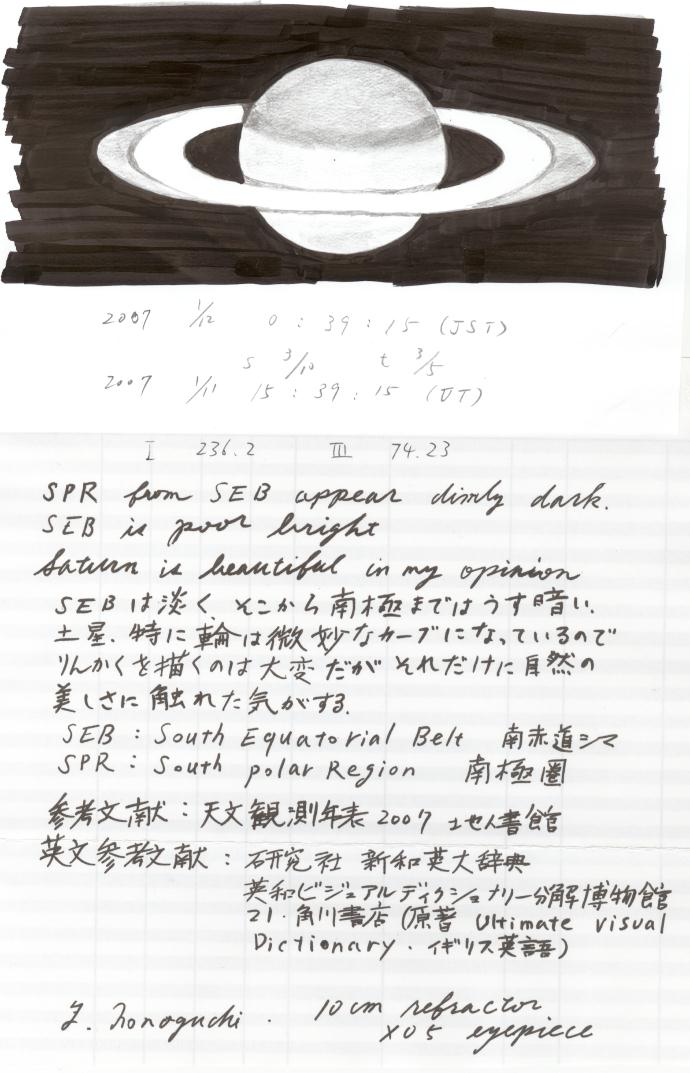 2007 1/12 0:39:15 (JST)
S 3/10 t 3/5
2007 1/11 15:39:15 (UT)
I 236.2 III 74.23
SPR from SEB appear dimly dark.
SEB is poor bright
Saturn is beautiful in my opinion
SEBは淡く そこから南極まではうす暗い.
土星、特に輪は微妙なカーブになっているので
りんかくを描くのは大変だがそれだけに自然の
美しさに触れた気がする.
SEB : South Equatorial Belt 南赤道シマ
SPR : South polar Region 南極圏
参考文献 : 天文観測年表2007 地人書館
英文参考文献 : 研究社 新和英大辞典
英和ビジュアルディクショナリー分解博物館
21. 角川書店 (原著 Ultimate visual
Dictionary. イギリス英語)
Y. nonoguchi. 10cm refractor
XO5 eyepiece